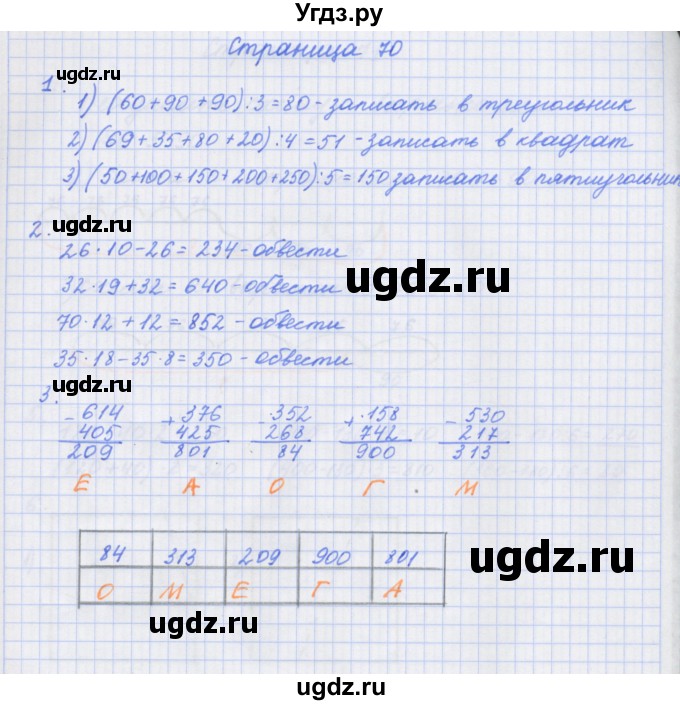 Угдз.ру
Страница 70
ugdz.ru
1.
1) (60+90+90):3=80-записать в треугольник
2) (69+35+80+20):4=51-записать в квадрат
ugdz.ru
3) (50+100+150+200+250):5=150 записать в пятиугольник
2.
ugdz.ru
26·10-26=234-обвести
32·19+32=640-обвести
ugdz.ru
70·12+12=852-обвести
35·18-35·8=350-обвести
ugdz.ru
3.
-614 +376 -352 +158 -530
405 425 268 742 217
209 801 84 900 313
Е А О Г М
84 313 209 900 801
ugdz.ru
О М Е Г А
ugdz.ru
ugdz.ru
ugdz.ru